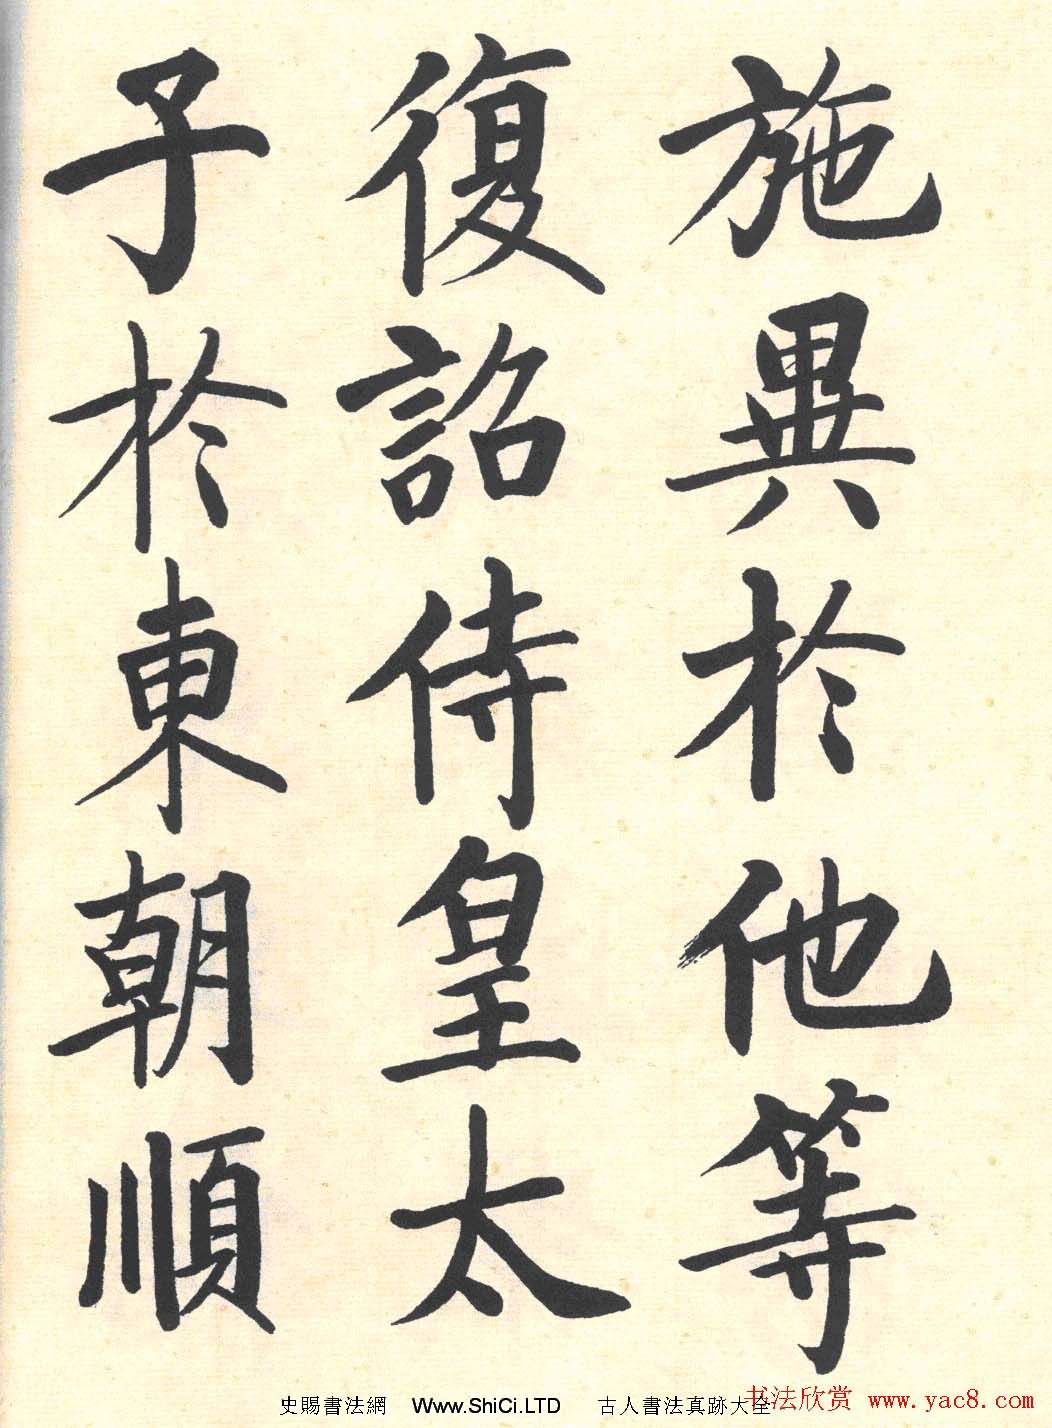 施異於他等
復詔侍皇太
子於東朝順
史賜書法網 Www.ShiCi.LTD 古人書法真跡大全
书法欣赏 www.yac8.com